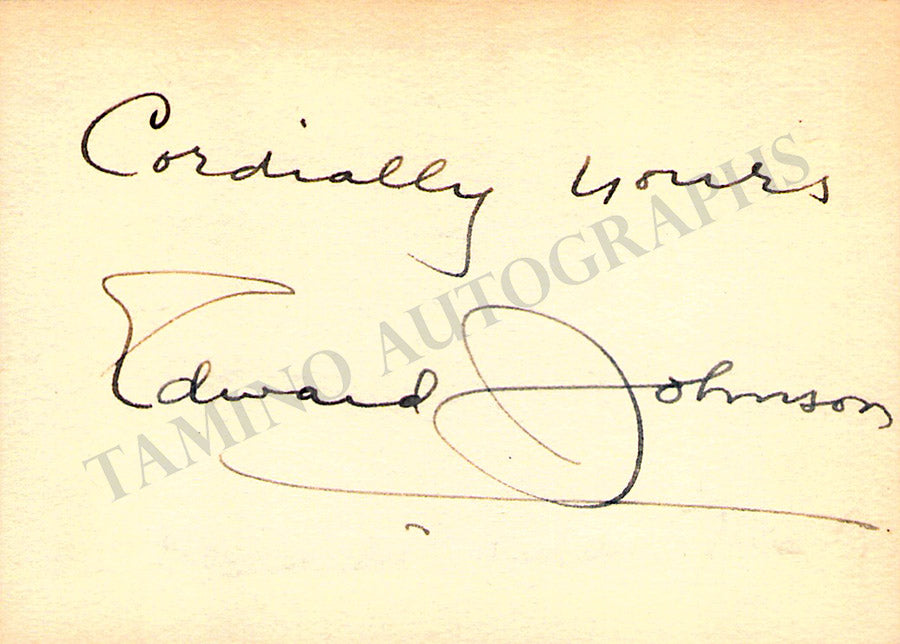 Cordially yours
Edward Johnson
TAMINO AUTOGRAPHS